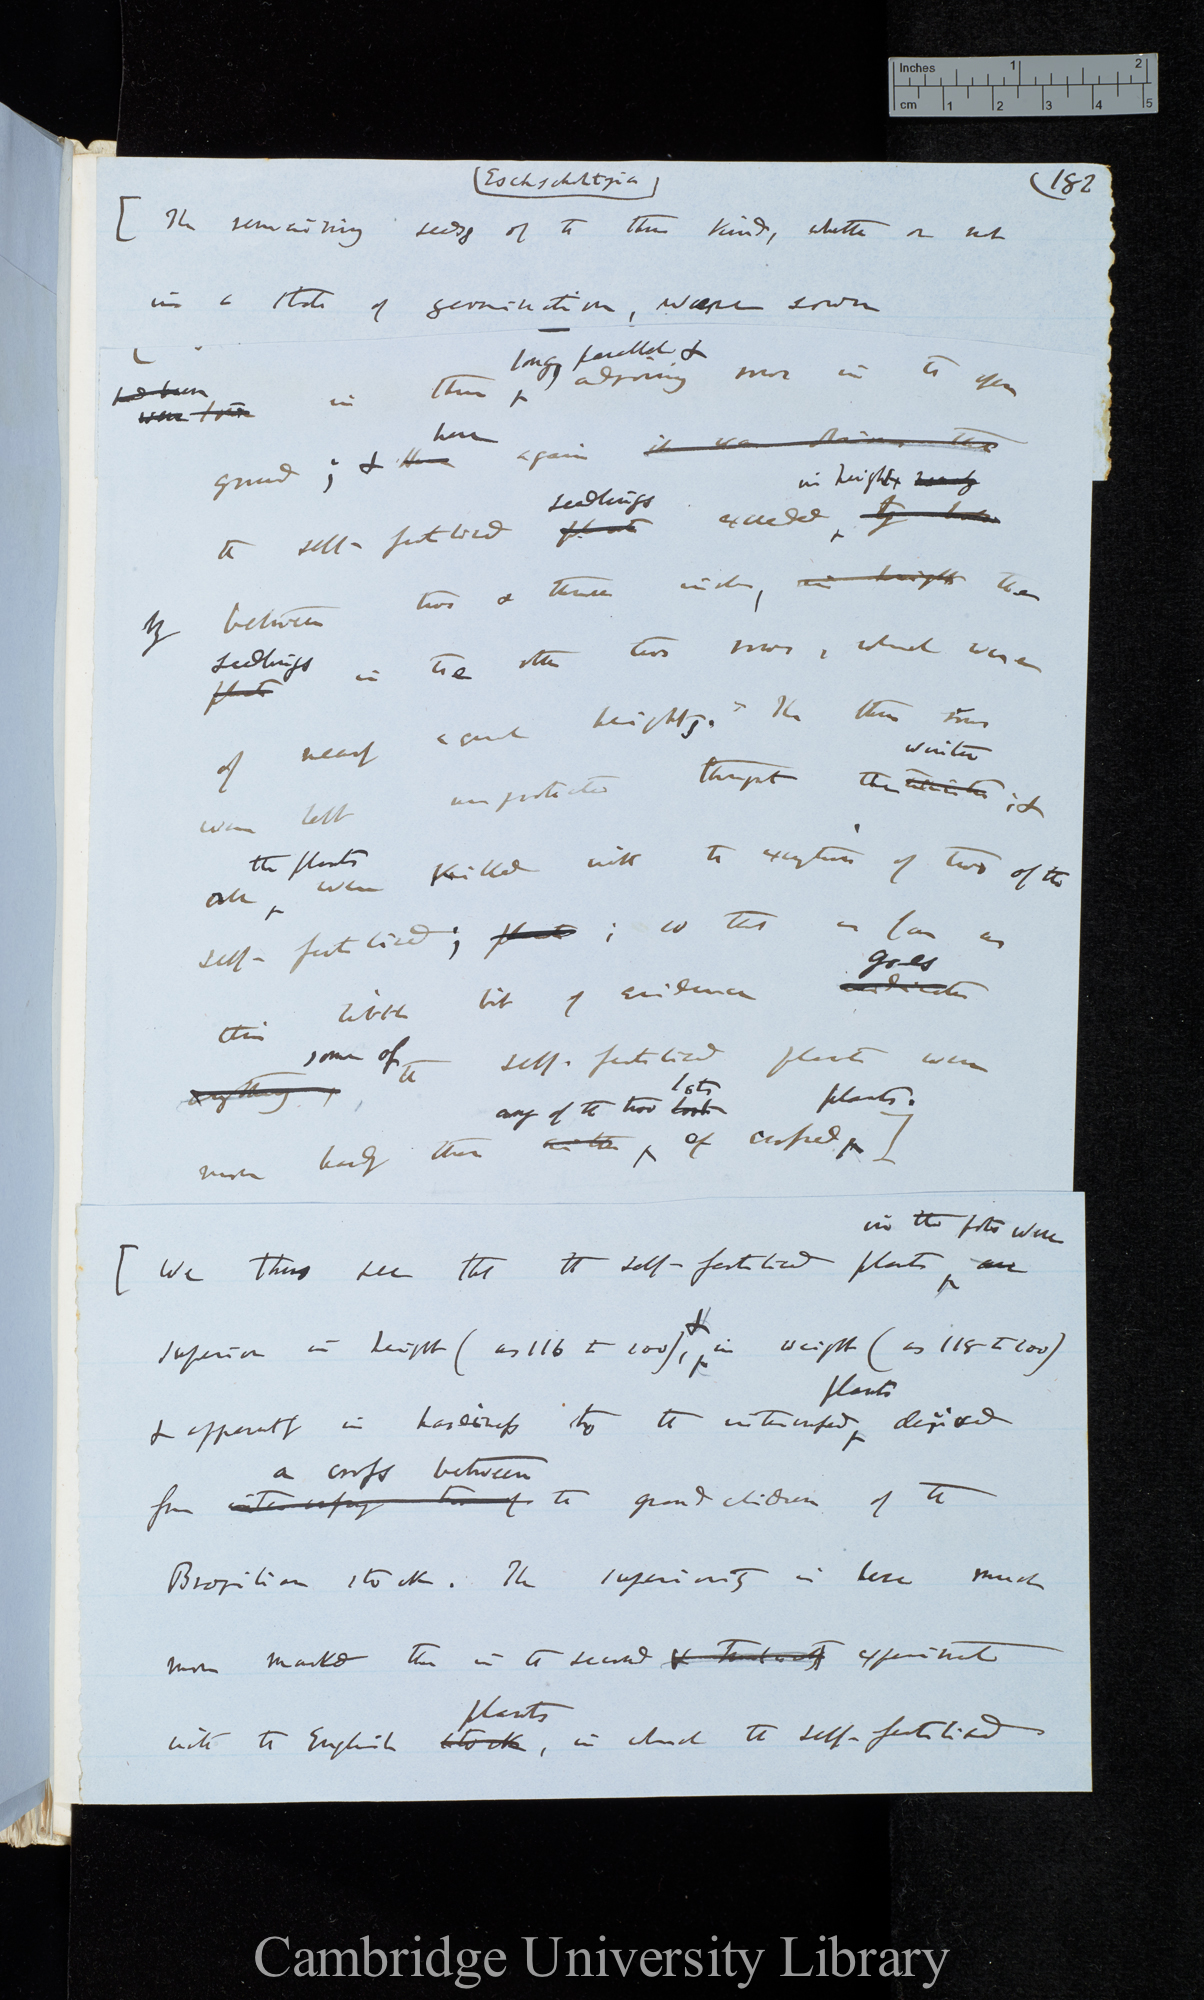 Inches 1 2
cm 1 2 3 4 5
(Eschscholtzia) (182
[ The remaining seeds of the three kinds, whether or not
in a state of germination, were sown
had been
were sown in three long, parallel & adjoining rows in the open
ground; & there here again it was obvious that
the self-fertilised plants seedlings exceeded in height nearly by between
by between two & three inches, in height the
plants seedlings in the other two rows, which were
of nearly equal heights. The three rows
were left unprotected through the winter winter; &
all the plants were killed with the exception of two of the
self-fertilised; plants; so that as far as
this little bit of evidence indicates goes
anything, some of the self-fertilised plants were
more hardy than either any of the two lots of crossed plants.]
[ We thus see that the self-fertilised plants in the pots were are
superior in height (as 116 to 100), & in weight (as 118 to 100)
& apparently in hardiness to the intercrossed plants derived
from a cross between the grandchildren of the
Brazilian stock. The superiority is here much
more marked than in the second experiment
with the English stock plants, in which the self-fertilised
Cambridge University Library